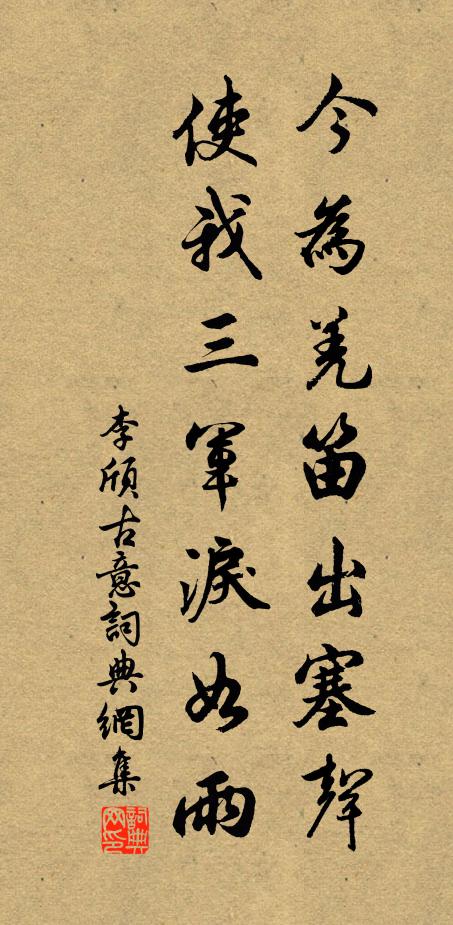 今為羌笛出塞聲
使我三軍淚如雨
李頎古意詞典網集
詞典網印